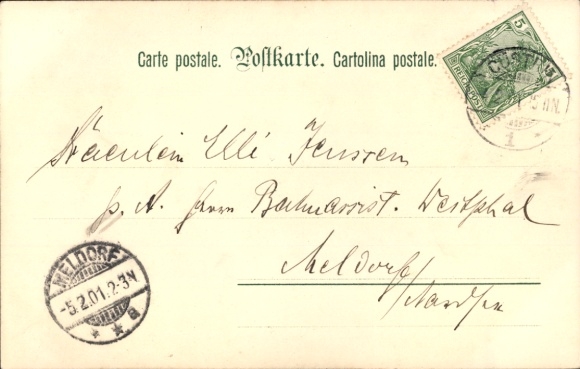 Carte postale. Postkarte. Cartolina postale.
5
REICHSPOST
CÜSTRIN
1
Fräulein Elli Jenssen
p. A. Herrn Bahnassist. Westphal
Meldorf
MELDORF
-5.2.01.2-3N
* * a